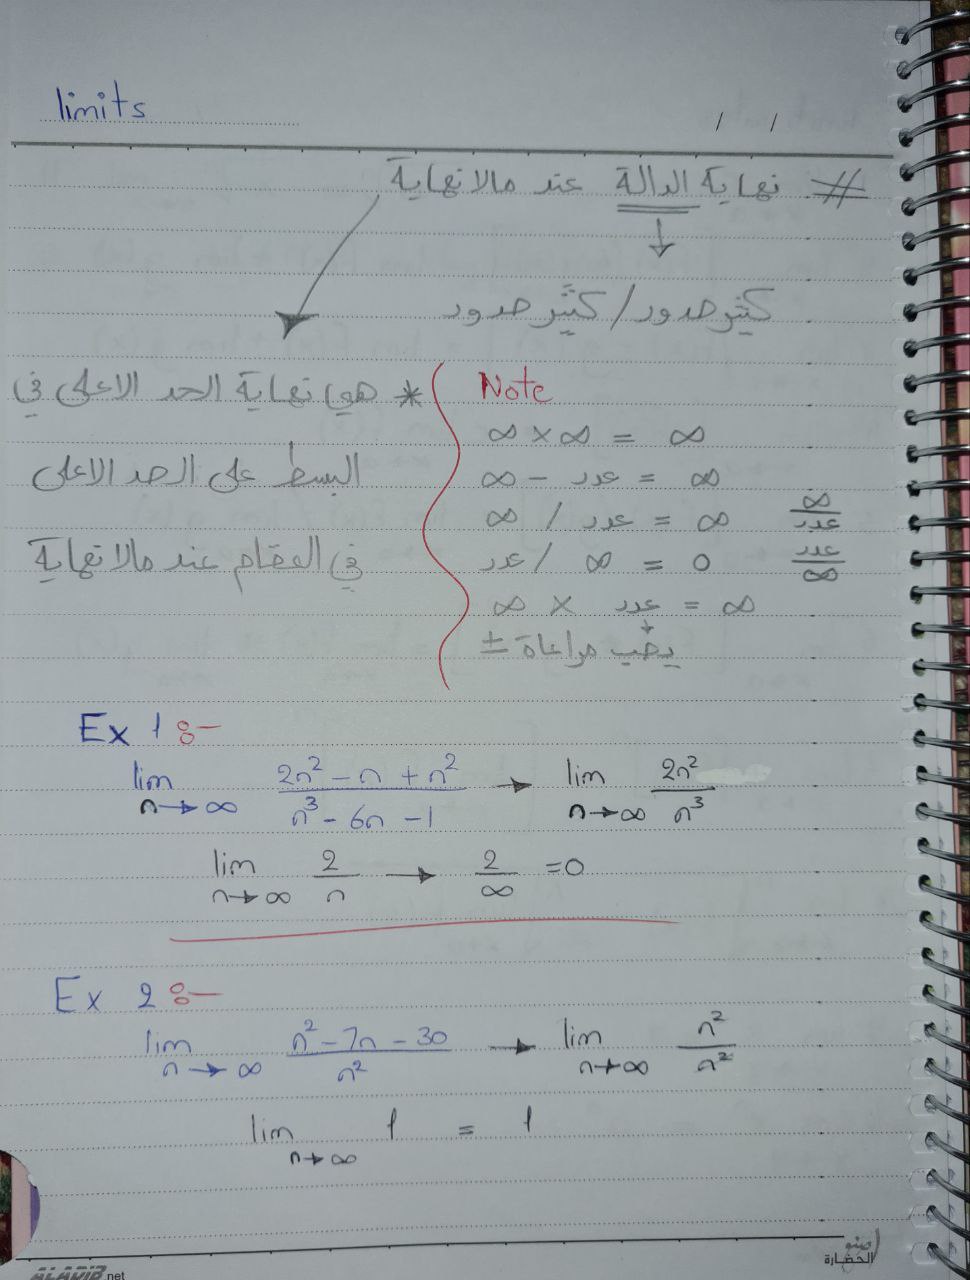 limits
/ /
# نهاية الدالة عند مالانهاية
↓
كثير حدود / كثير حدود
* هي نهاية الحد الاعلى في
البسط على الحد الاعلى
في المقام عند مالانهاية
Note
∞ × ∞ = ∞
∞ - عدد = ∞
∞ / عدد = ∞ ∞/عدد
عدد / ∞ = 0 عدد/∞
∞ × عدد = ∞
يجب مراعاة ±
Ex 1 :-
lim n→∞ (2n² - n + n²)/(n³ - 6n - 1) → lim n→∞ 2n²/n³
lim n→∞ 2/n → 2/∞ = 0
Ex 2 :-
lim n→∞ (n² - 7n - 30)/n² → lim n→∞ n²/n²
lim n→∞ 1 = 1
صنو الحضارة
ALADIB.net